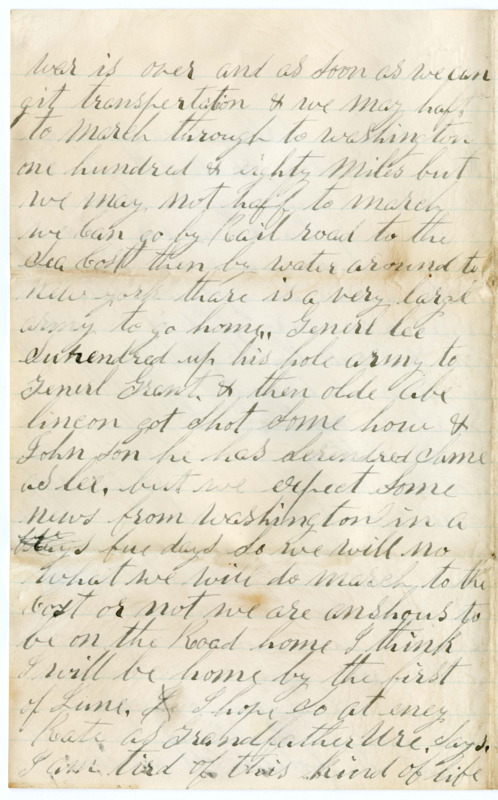 war is over and as soon as we can
git transpertation & we may haff
to march through to washington
one hundred & eighty Miles but
we may not haff to march
we can go by Rail road to the
Sea Cost then by water around to
New york thare is a very large
army to go home,, Generl lee
surendred up his hole army to
Generl Grant. & then olde Abe
lincon got shot some how &
John son he has serendred same
as lee, but we expect some
news from Washington in a
fue days so we will no
what we will do march to the
Cost or not we are anshous to
be on the Road home I think
I will be home by the first
of June. I hope so at eney
Rate as Grandfather Ure. Says.
I am tird of this kind of life